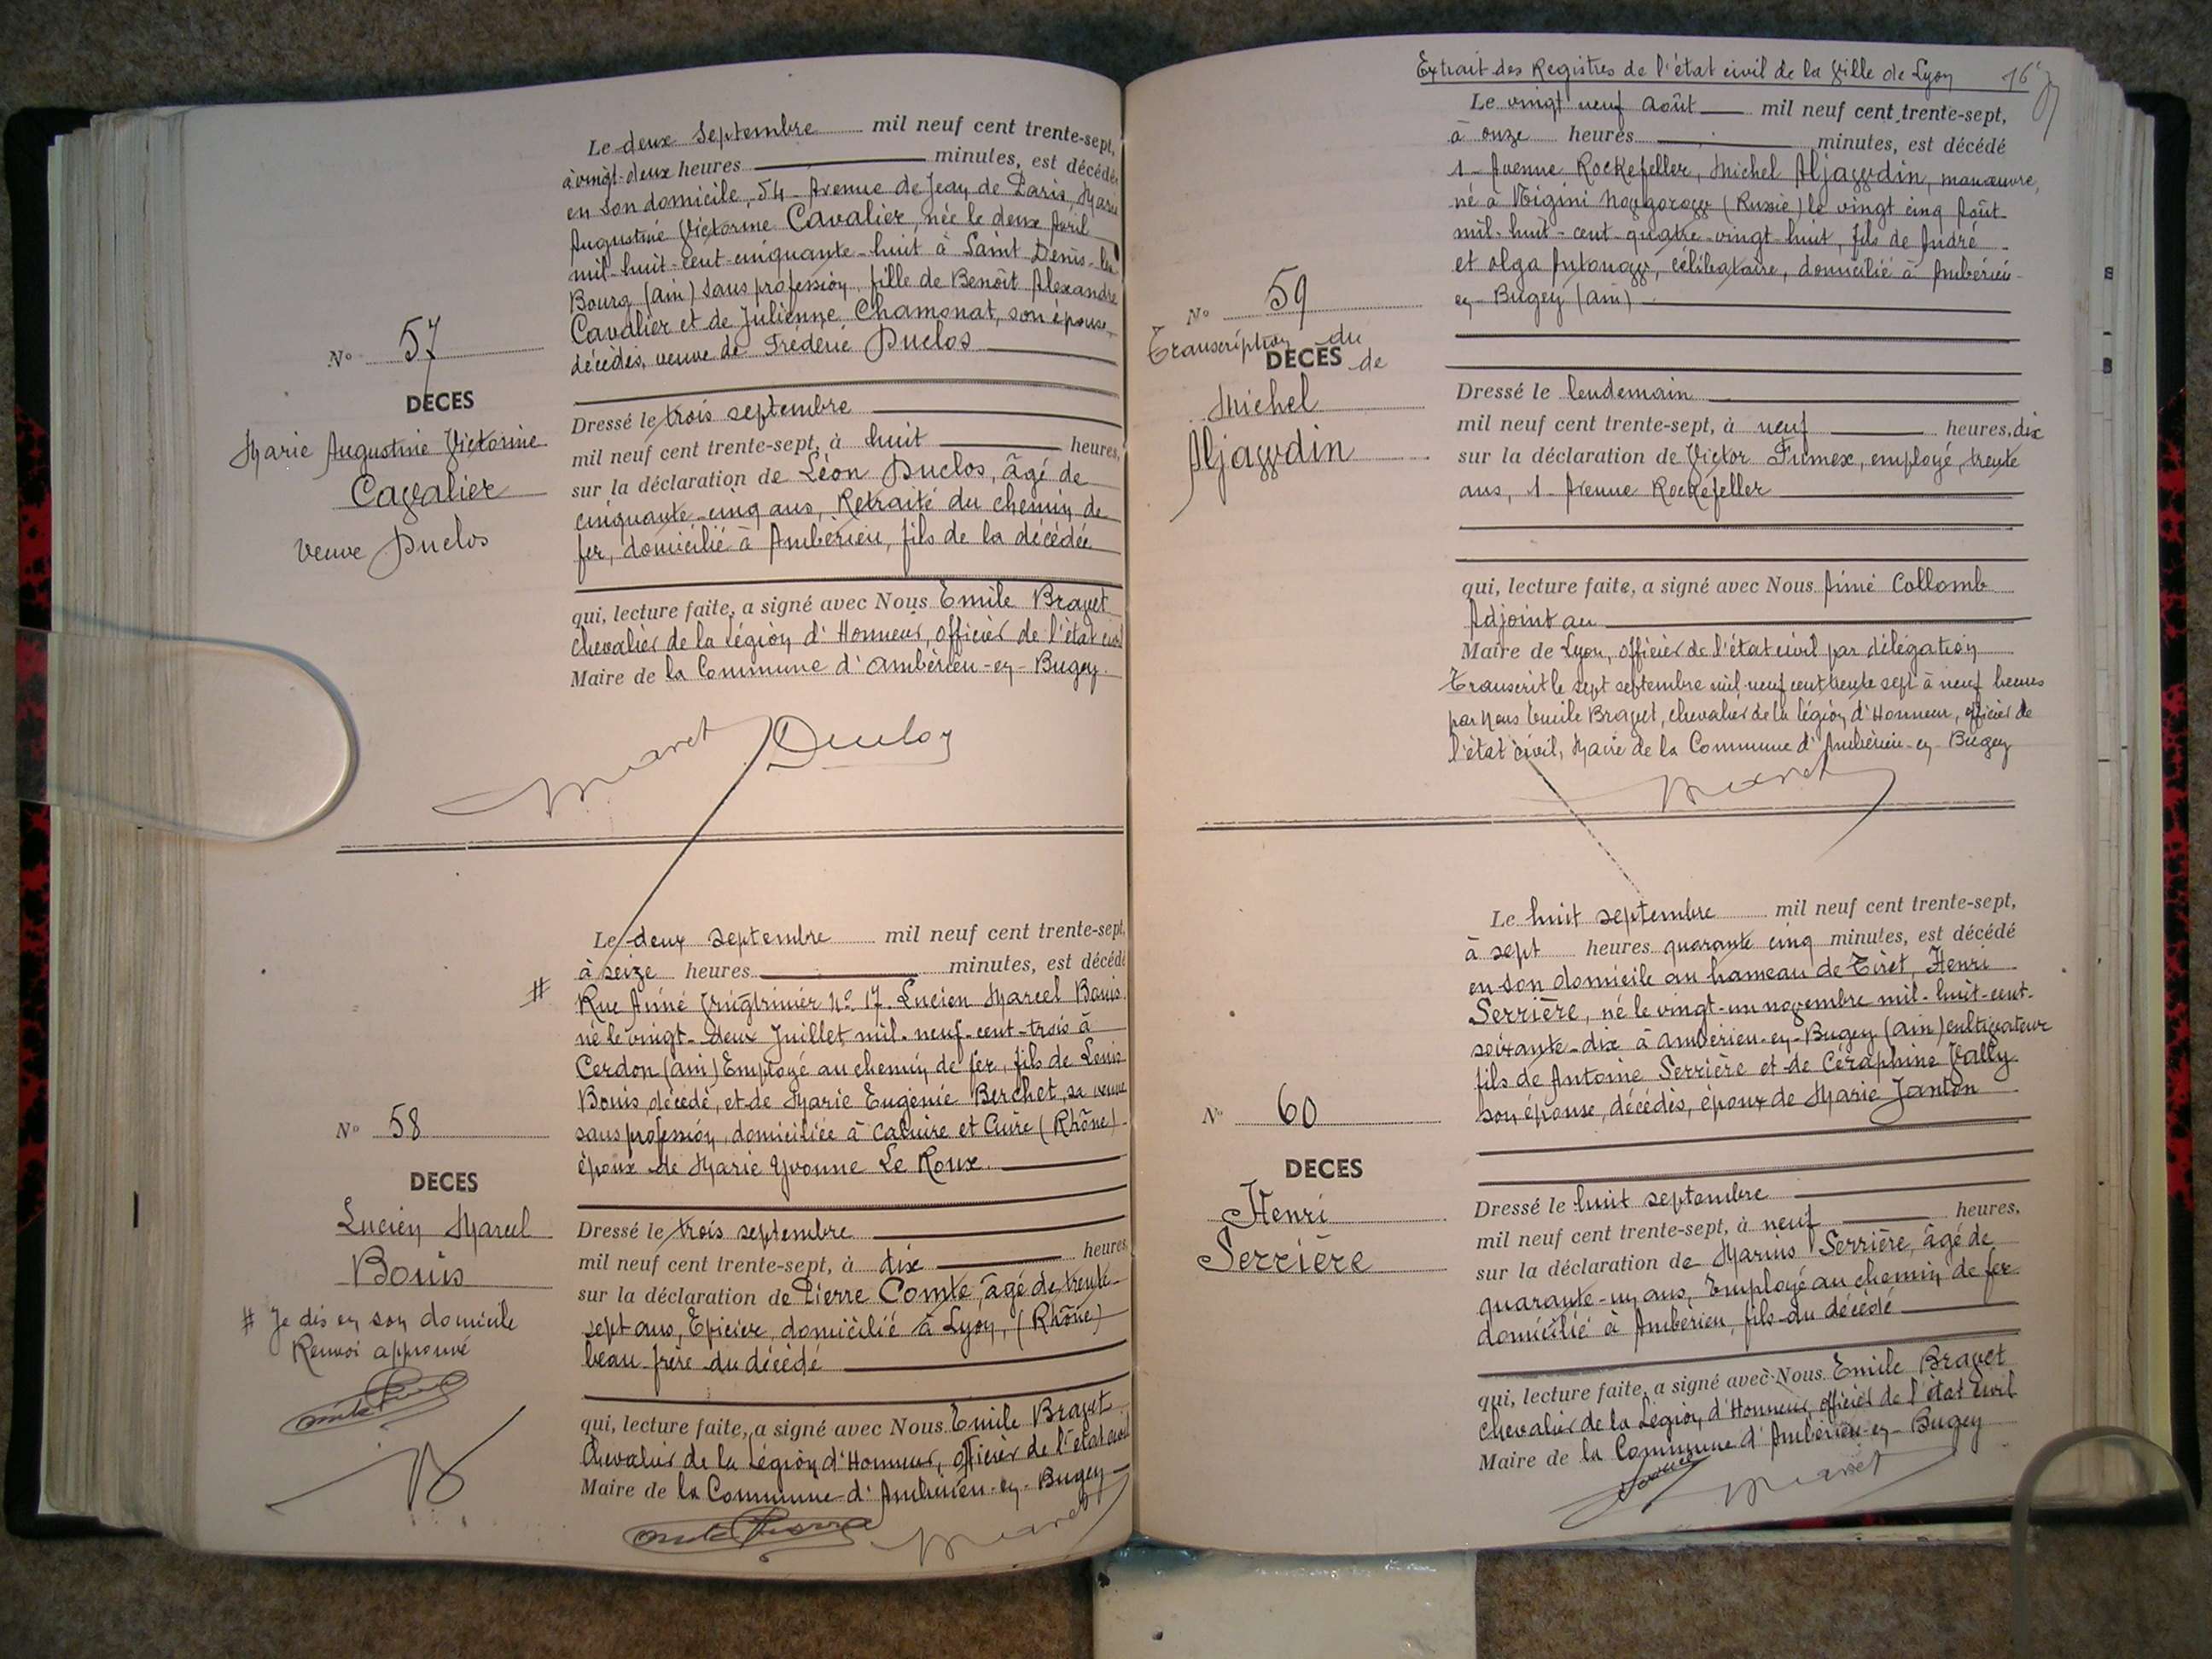 Le deux Septembre mil neuf cent trente-sept,
à vingt-deux heures minutes, est décédé
en son domicile, 54 Avenue de Jean de Paris, Marie
Augustine Victorine Cavalier, née le deux Avril
mil-huit-cent-cinquante-huit à Saint Denis-les
Bourg (ain) sans profession, fille de Benoît Alexandre
Cavalier et de Julienne Chamonat, son épouse,
décédés, veuve de Frédéric Duclos
N° 57
DECES
Marie Augustine Victorine
Cavalier
Veuve Duclos
Dressé le trois septembre
mil neuf cent trente-sept, à huit heures,
sur la déclaration de Léon Duclos, âgé de
cinquante-cinq ans, Retraité du chemin de
fer, domicilié à Ambérieu, fils de la décédée
qui, lecture faite, a signé avec Nous Emile Bravet
chevalier de la Légion d'Honneur, officier de l'état civil
Maire de la Commune d'Ambérieu-en-Bugey.
Duclos
Le deux septembre mil neuf cent trente-sept,
à seize heures minutes, est décédé
# Rue Aimé N° 17. Lucien Marcel Bouis
né le vingt-deux Juillet mil-neuf-cent-trois à
Cerdon (ain) Employé au chemin de fer, fils de Louis
Bouis, décédé, et de Marie Eugénie Berchet, sa veuve
sans profession, domiciliée à Caluire et Cuire (Rhône)
époux de Marie Yvonne Le Roux.
N° 58
DECES
Lucien Marcel
Bouis
# Je dis en son domicile
Renvoi approuvé
Dressé le trois septembre
mil neuf cent trente-sept, à dix heures
sur la déclaration de Pierre Comte, âgé de trente-
sept ans, Epicier, domicilié à Lyon, (Rhône)
beau-frère du décédé
qui, lecture faite, a signé avec Nous Emile Bravet
Chevalier de la Légion d'Honneur, officier de l'état civil
Maire de la Commune d'Ambérieu-en-Bugey
Extrait des Registres de l'état civil de la Ville de Lyon
Le vingt neuf Août mil neuf cent trente-sept,
à onze heures minutes, est décédé
1 Avenue Rockefeller, Michel Aljavvdin, manœuvre,
né à Nigini Novgorovv (Russie) le vingt cinq Août
mil-huit-cent-quatre-vingt-huit, fils de André
et Olga Antonovv, célibataire, domicilié à Ambérieu-
en-Bugey (ain)
N° 59
Transcription du
DECES de
Michel
Aljavvdin
Dressé le lendemain
mil neuf cent trente-sept, à neuf heures, dix
sur la déclaration de Victor Fumex, employé, trente
ans, 1 Avenue Rockefeller
qui, lecture faite, a signé avec Nous Aimé Collomb
Adjoint au
Maire de Lyon, officier de l'état civil par délégation
Transcrit le sept septembre mil neuf cent trente sept à neuf heures
par Nous Emile Bravet, chevalier de la légion d'Honneur, officier de
l'état civil, Maire de la Commune d'Ambérieu-en-Bugey
Le huit septembre mil neuf cent trente-sept,
à sept heures quarante cinq minutes, est décédé
en son domicile au hameau de Tiret, Henri
Serrière, né le vingt-un novembre mil-huit-cent-
soixante-dix à Ambérieu-en-Bugey (ain) cultivateur
fils de Antoine Serrière et de Céraphine Vally
son épouse, décédés, époux de Marie Janton
N° 60
DECES
Henri
Serrière
Dressé le huit septembre
mil neuf cent trente-sept, à neuf heures,
sur la déclaration de Marius Serrière, âgé de
quarante-un ans, Employé au chemin de fer
domicilié à Ambérieu, fils du décédé
qui, lecture faite, a signé avec Nous Emile Bravet
Chevalier de la Légion d'Honneur, officier de l'état civil
Maire de la Commune d'Ambérieu-en-Bugey